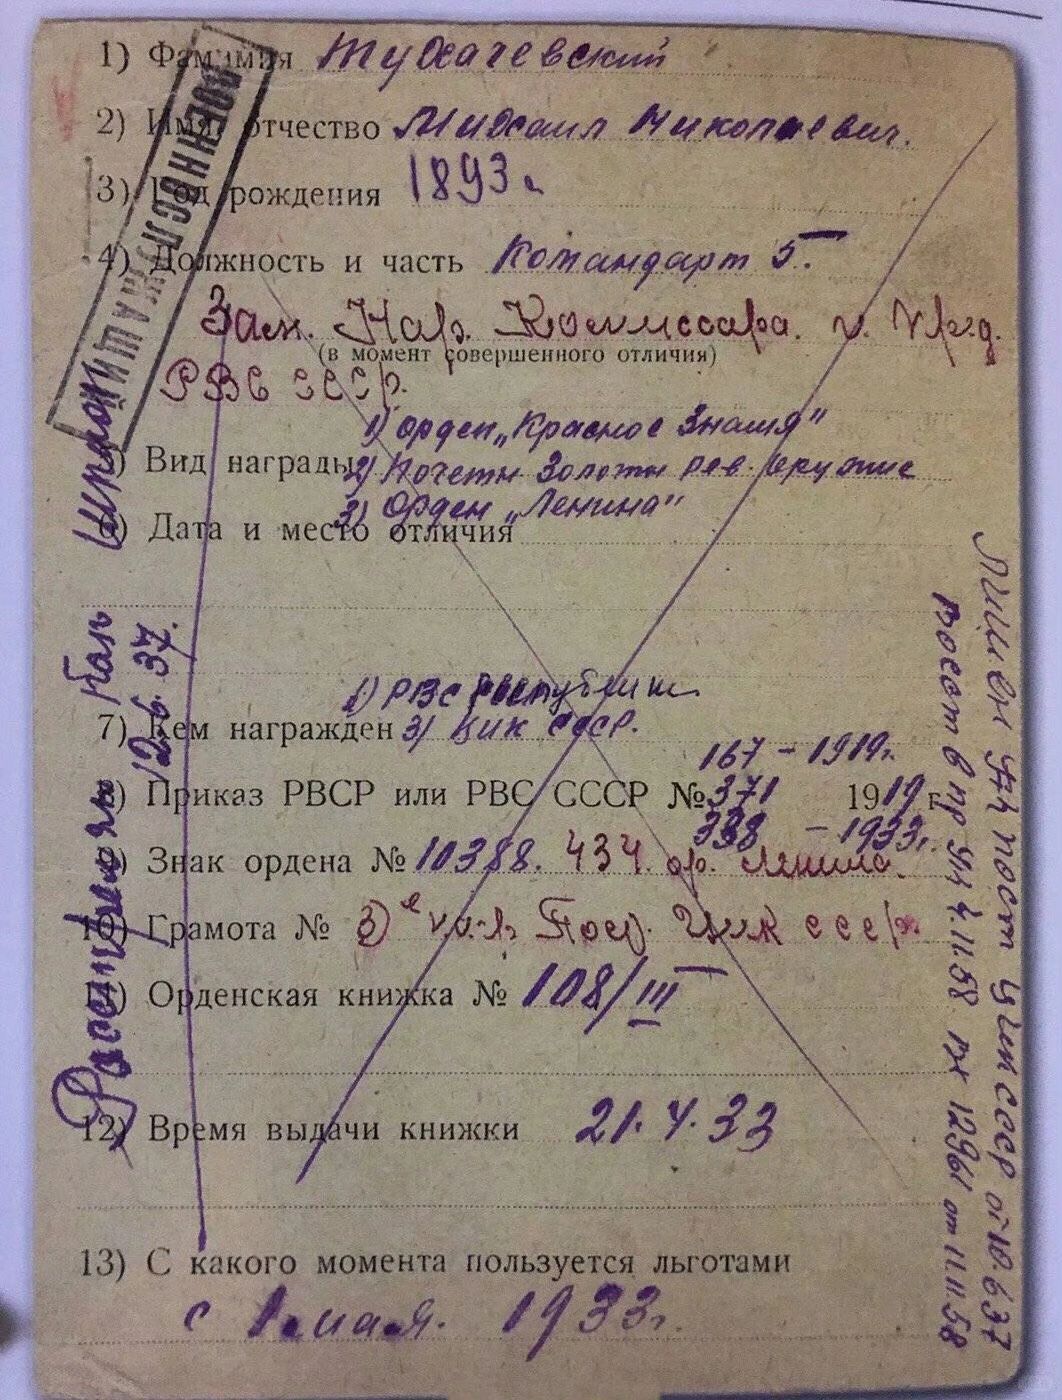 1) Фамилия Тухачевский
2) Имя, отчество Михаил Николаевич.
3) Год рождения 1893 г.
4) Должность и часть Командарм 5.
Зам. Нар. Комиссара. и Пред.
(в момент совершенного отличия)
РВС СССР.
1) орден „Красное Знамя"
5) Вид награды 2) Почетн Золотн рев. оружие
3) Орден „Ленина"
6) Дата и место отличия
1) РВС Республики
7) Кем награжден 3) ЦИК СССР.
167 – 1919г.
8) Приказ РВСР или РВС СССР № 371 1919 г.
338 – 1933г.
9) Знак ордена № 10388. 434. ор. Ленина.
10) Грамота № 3) Пост. ЦИК СССР
11) Орденская книжка № 108/III
12) Время выдачи книжки 21.4.33
13) С какого момента пользуется льготами
с 1 мая. 1933г.
ВОЕННОСЛУЖАЩИЙ
Расстрелян был шпион
12.6.37.
Лишен Указ пост ЦИК СССР от 10.6.37
Восст в пр Указ 4.11.58 вх 12961 от 11.11.58